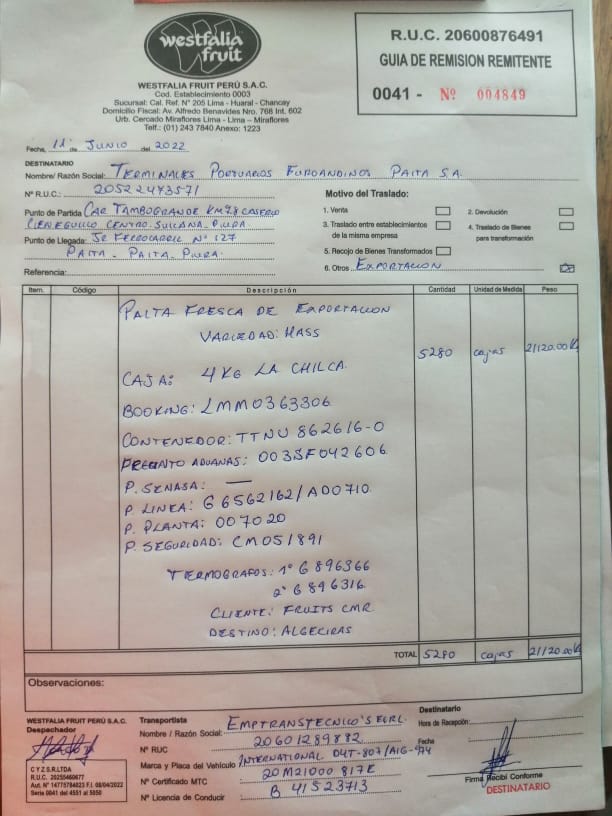 westfalia
fruit
WESTFALIA FRUIT PERÚ S.A.C.
Cod. Establecimiento 0003
Sucursal: Cal. Ref. N° 205 Lima - Huaral - Chancay
Domicilio Fiscal: Av. Alfredo Benavides Nro. 768 Int. 602
Urb. Cercado Miraflores Lima - Lima - Miraflores
Telf.: (01) 243 7840 Anexo: 1223
R.U.C. 20600876491
GUIA DE REMISION REMITENTE
0041 - Nº 004849
Fecha, 11 de JUNIO del 2022
DESTINATARIO
Nombre/ Razón Social: TERMINALES PORTUARIOS EUROANDINOS PAITA S.A.
N° R.U.C.: 20522473571
Punto de Partida CAR TAMBOGRANDE KM 7.8 CASERIO
CIENEGUILLO CENTRO. SULLANA - PIURA
Punto de Llegada: JR FERROCARRIL N° 127
PAITA - PAITA - PIURA.
Referencia:
Motivo del Traslado:
1. Venta
2. Devolución
3. Traslado entre establecimientos de la misma empresa
4. Traslado de Bienes para transformación
5. Recojo de Bienes Transformados
6. Otros EXPORTACION
Item. Código Descripción Cantidad Unidad de Medida Peso
PALTA FRESCA DE EXPORTACION
VARIEDAD: HASS
5280 cajas 21120.00K
CAJA: 4 KG LA CHILCA
BOOKING: LMM0363306
CONTENEDOR: TTNU 862616-0
PRECINTO ADUANAS: 003SF042606
P. SENASA: —
P. LINEA: G6562162/AD0710
P. PLANTA: 007020
P. SEGURIDAD: CM051891
TERMOGRAFOS: 1° G896366
2° G896316
CLIENTE: FRUITS CMR
DESTINO: ALGECIRAS
TOTAL 5280 cajas 21120.00K
Observaciones:
WESTFALIA FRUIT PERÚ S.A.C.
Despachador
C Y Z S.R.LTDA
R.U.C. 20255460677
Aut. N° 14775784023 F.I. 08/04/2022
Serie 0041 del 4551 al 5050
Transportista
Nombre / Razón Social: EMPTRANSTECNICO'S EIRL.
N° RUC 20601289882
Marca y Placa del Vehículo INTERNATIONAL D4T-807/A1G-974
N° Certificado MTC 20M21000 817E
N° Licencia de Conducir B 41523713
Destinatario
Hora de Recepción:
Fecha
Firma Recibí Conforme
DESTINATARIO